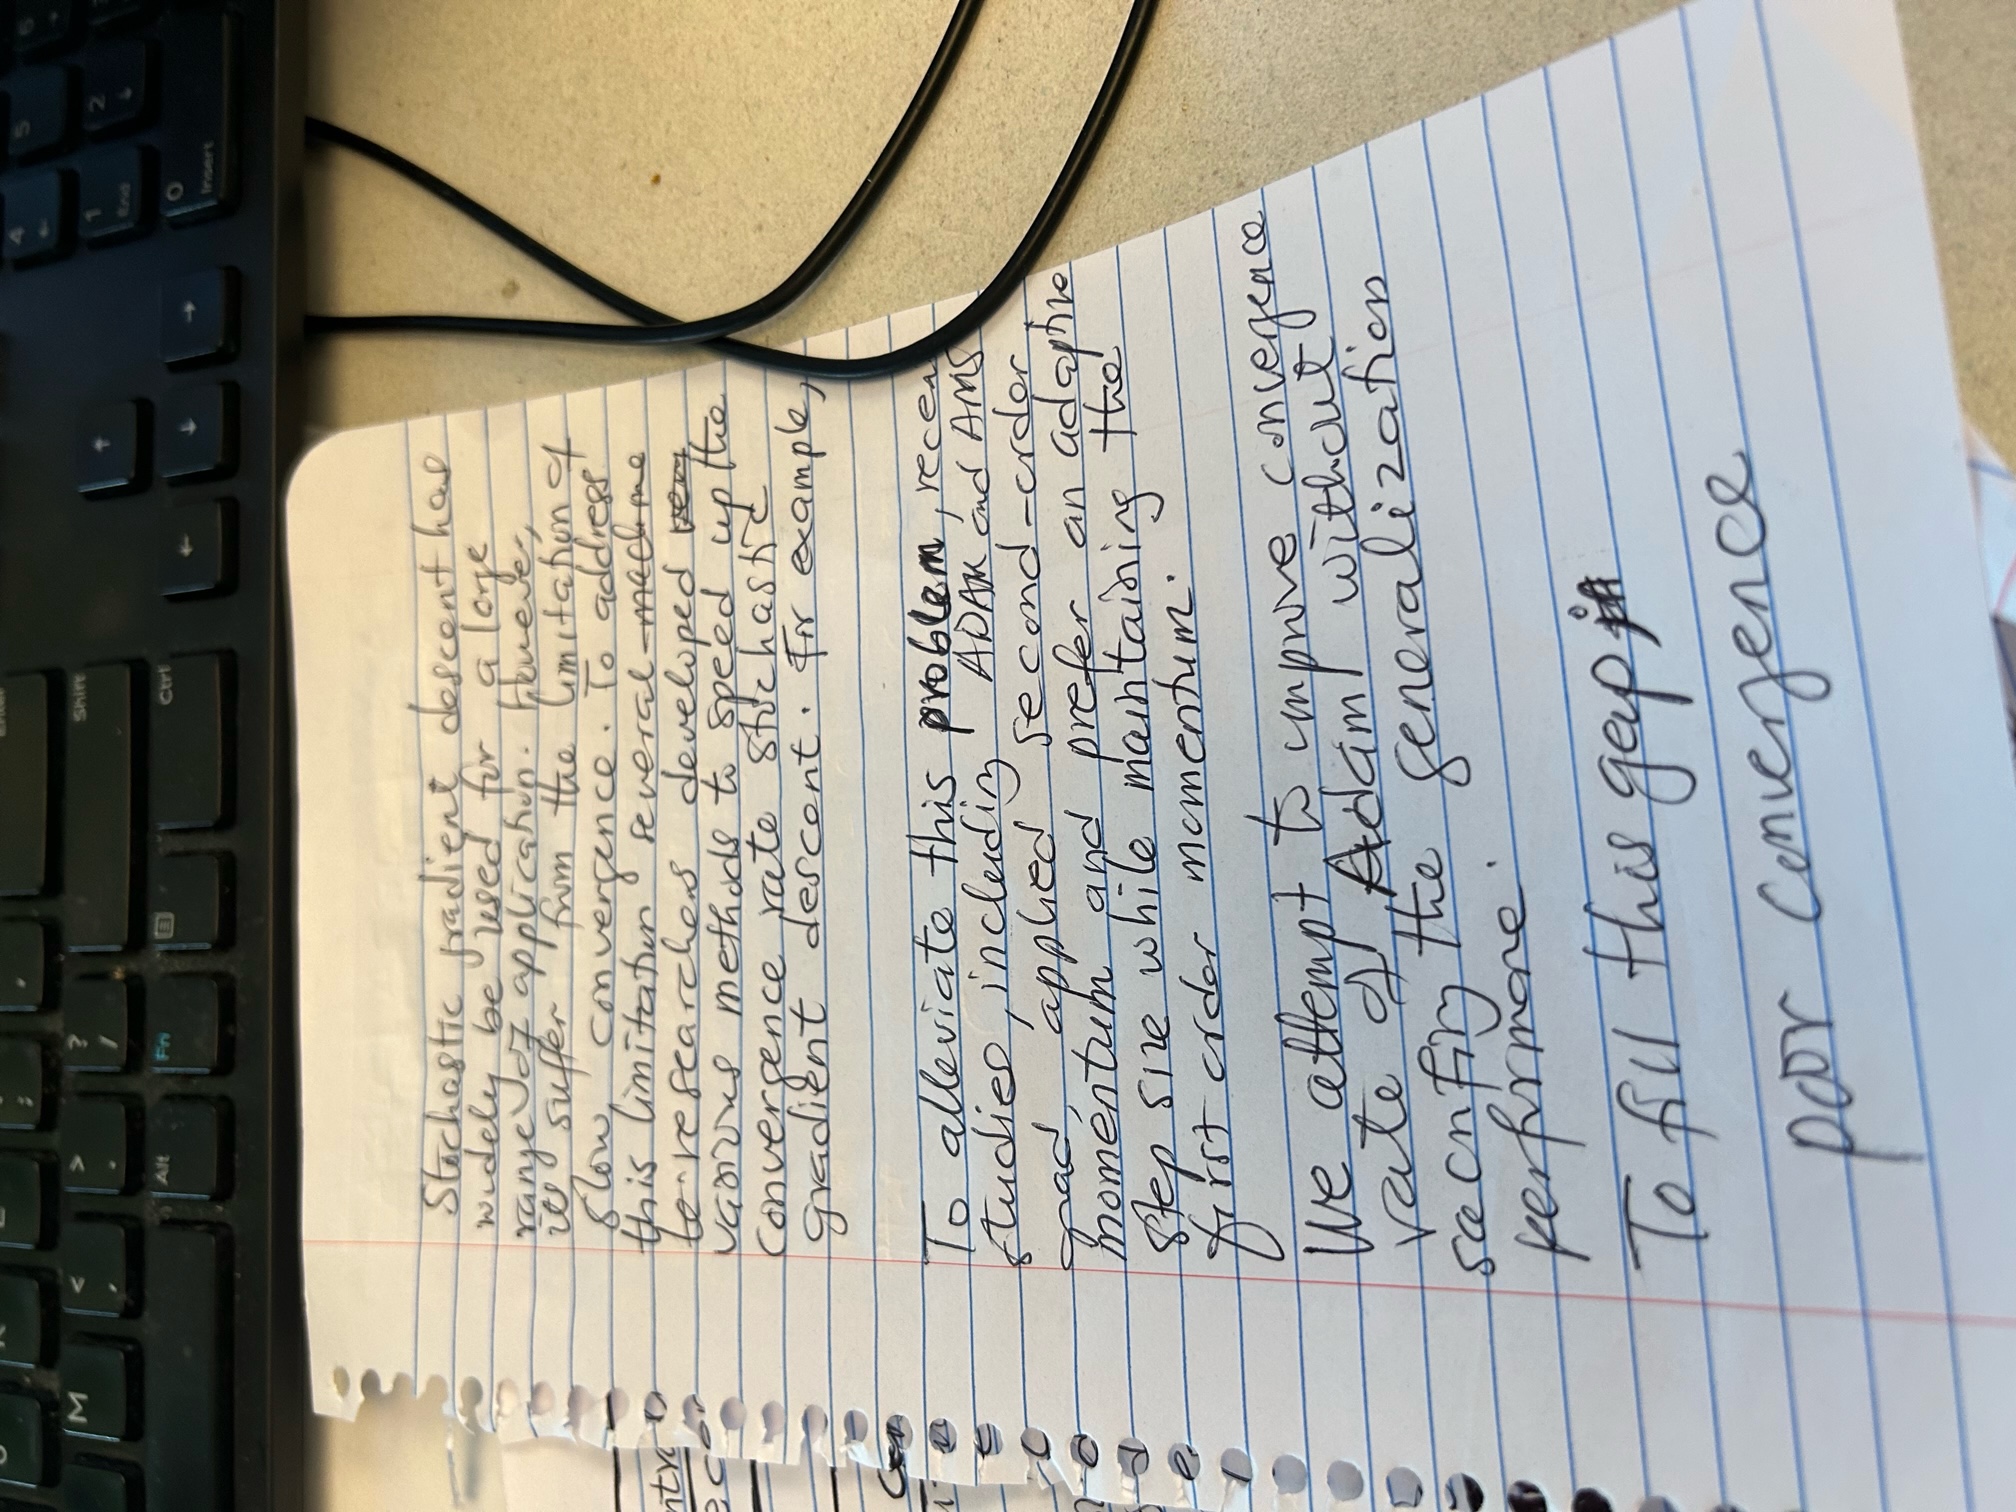 M < , > . ? / Shift
Alt Fn Ctrl
4 5 6
1 End 2
0 Insert
Stochastic gradient descent has
widely be used for a large
range of application. However,
it suffer from the limitation of
slow convergence. To address
this limitation several machine
to researchers developed very
various methods to speed up the
convergence rate stochastic
gradient descent. For example,
To alleviate this problem, recen
studies, including ADAM and AMS
grad, applied second-order
momentum and prefer an adaptive
step size while maintaining the
first order momentum.
We attempt to improve convergence
rate of Adam without
sacrifing the generalization
performance.
To fill this gap in
poor convergence